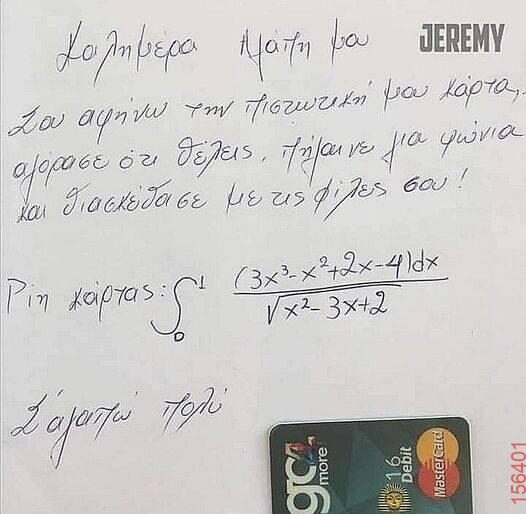 Καλημέρα Αγάπη μου
JEREMY
Σου αφήνω την πιστωτική μου κάρτα,
αγόρασε ότι θέλεις, πήγαινε για ψώνια
και διασκέδασε με τις φίλες σου!
Pin κάρτας: ∫₀¹ (3x³-x²+2x-4)dx / √x²-3x+2
Σ'αγαπώ πολύ
more
16
Debit
MasterCard
156401